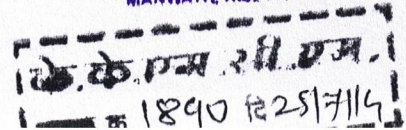 के.के.एम.सी.एम.
क्र 1890 दि 25/7/14